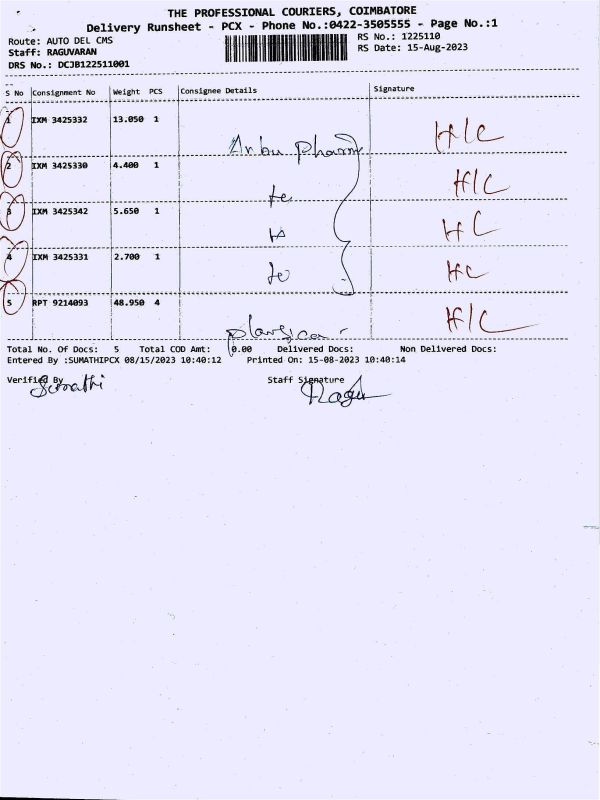 THE PROFESSIONAL COURIERS, COIMBATORE
Delivery Runsheet - PCX - Phone No.:0422-3505555 - Page No.:1
Route: AUTO DEL CMS
RS No.: 1225110
Staff: RAGUVARAN
RS Date: 15-Aug-2023
DRS No.: DCJB122511001
S No Consignment No Weight PCS Consignee Details Signature
1 IXM 3425332 13.050 1 Anbu Pharma H/C
2 IXM 3425330 4.400 1 H/C
3 IXM 3425342 5.650 1 H C
4 IXM 3425331 2.700 1 HC
5 RPT 9214093 48.950 4 H/C
Total No. Of Docs: 5 Total COD Amt: 0.00 Delivered Docs: Non Delivered Docs:
Entered By :SUMATHIPCX 08/15/2023 10:40:12 Printed On: 15-08-2023 10:40:14
Verified By Staff Signature
Sumathi Ragu